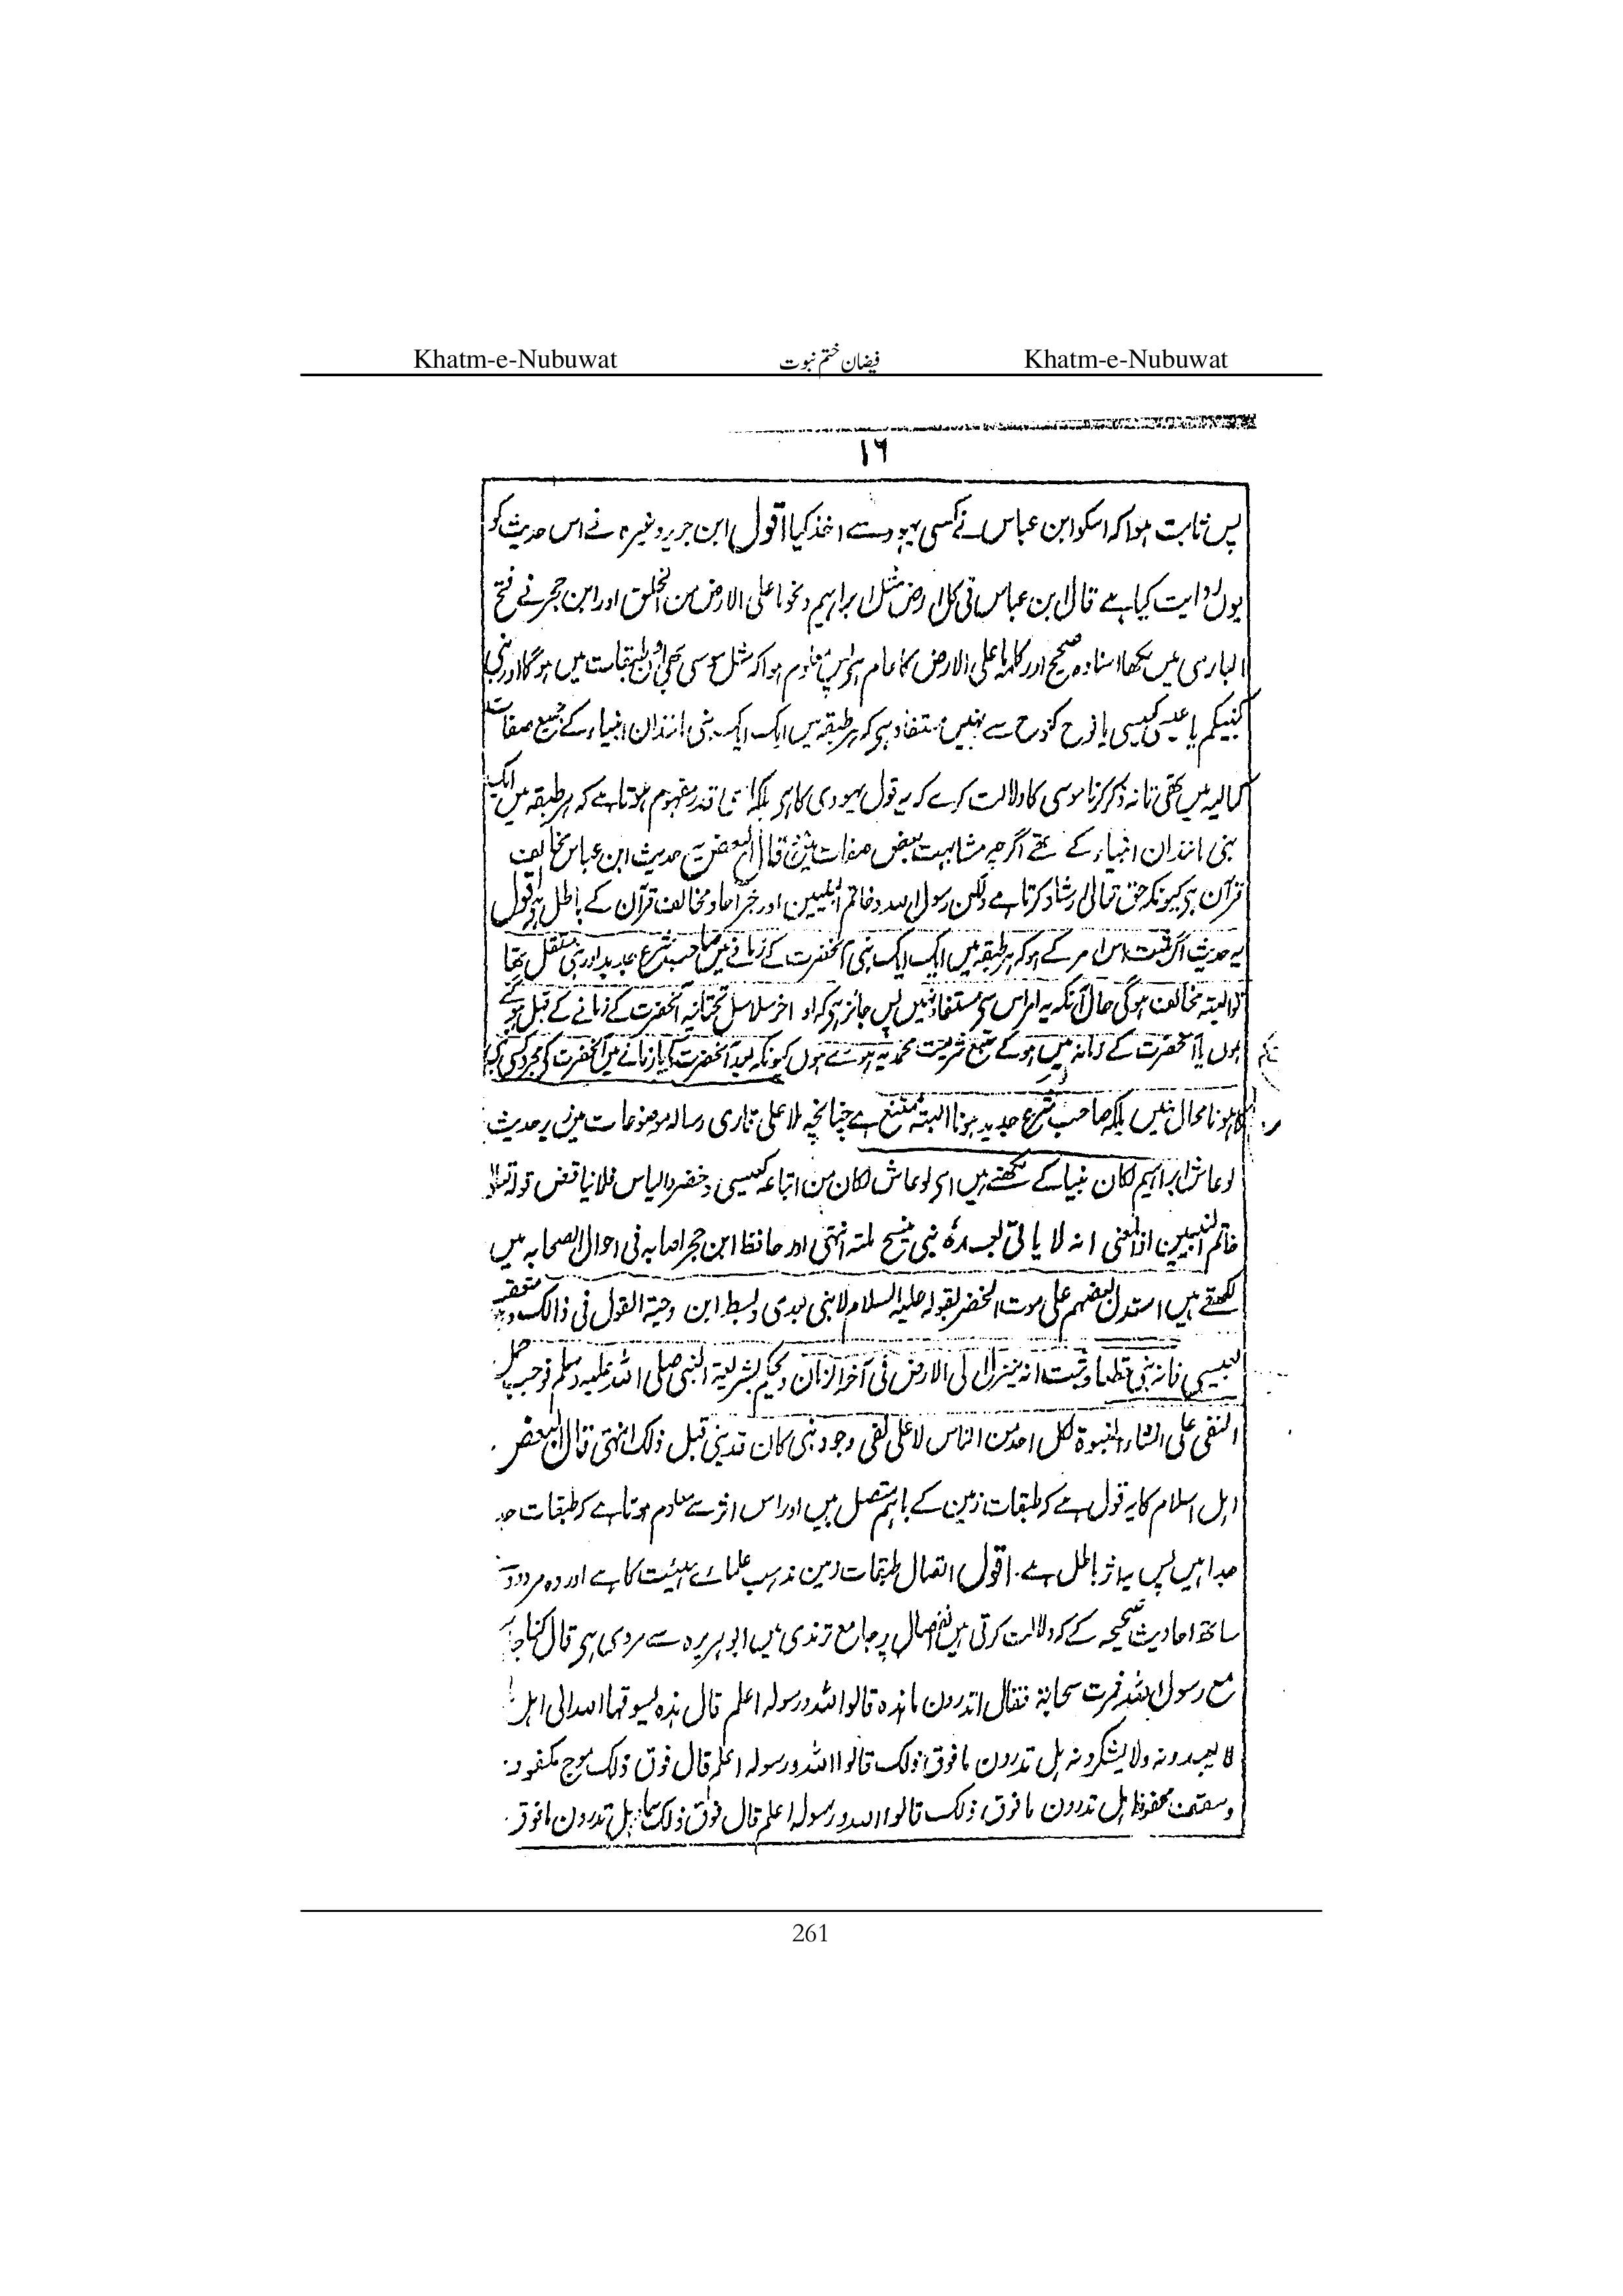 Khatm-e-Nubuwat فیضان ختم نبوت Khatm-e-Nubuwat
۱۶
پس ثابت ہوا کہ اسکو ابن عباس نے کسی یہود سے اخذ کیا اقول ابن جریر وغیرہ نے اس حدیث کو
یوں روایت کیا ہے قال ابن عباس فی کل ارض مثل ابراہیم ونحو ما علی الارض من الخلق اور ابن حجر نے فتح
الباری میں لکھا اسنادہ صحیح اور کلمہ ما علی الارض کا عام ہے پس معلوم ہوا کہ مثل موسی بھی ان طبقات میں ہوگا اور نبی
کنبیکم یا عیسی کعیسی یا نوح کنوح سے نہیں مستفاد ہی کہ ہر طبقہ میں ایک ایک نبی انندان انبیاء کے جمیع صفات
کمالیہ میں تھی تا نہ ذکر کرنا موسی کا دلالت کرے کہ یہ قول یہودی کا ہی بلکہ قدر مفہوم ہوتا ہے کہ ہر طبقہ میں ایک
نبی انندان انبیاء کے تھے اگرچہ مشابہت بعض صفات میں قال البعض یہ حدیث ابن عباس مخالف
قرآن ہی کیونکہ حق تعالی ارشاد کرتا ہے ولکن رسول اللہ وخاتم النبیین اور خبر احاد مخالف قرآن کے باطل ہی اقول
یہ حدیث اگر مثبت اس امر کے ہو کہ ہر طبقہ میں ایک ایک نبی آنحضرت کے زمانے میں صاحب شرع جدید اور نبی مستقل تھا
تو البتہ مخالف ہوگی حال آنکہ یہ امر اس سی مستفاد نہیں پس جائز ہی کہ اواخر سلاسل تحتانیہ آنحضرت کے زمانے کے قبل ہوگے
ہوں یا آنحضرت کے زمانہ میں ہو کے متبع شریعت محمدیہ ہوئے ہوں کیونکہ بعد آنحضرت کے یا زمانے میں آنحضرت کے مجرد کسی نبی
کا ہونا محال نہیں بلکہ صاحب شرع جدید ہونا البتہ ممتنع ہے چنانچہ ملا علی قاری رسالہ موضوعات میں زیر حدیث
لو عاش ابراہیم لکان نبیا کے لکھتے ہیں ای لو عاش لکان من اتباعہ کعیسی وخضر والیاس فلا یناقض قولہ تعالی
خاتم النبیین اذ المعنی انہ لا یاتی بعدہ نبی ینسخ ملتہ انتہی اور حافظ ابن حجر اصابہ فی احوال الصحابہ میں
لکھتے ہیں استدل بعضہم علی موت الخضر بقولہ علیہ السلام لا نبی بعدی وبسط ابن دحیۃ القول فی ذالک وہو متعقب
بعیسی فانہ نبی قطعا وثبت انہ ینزل الی الارض فی آخر الزمان ویحکم بشریعۃ النبی صلی اللہ علیہ وسلم فوجب حمل
النفی علی انشاء النبوۃ لکل احد من الناس لا علی نفی وجود نبی کان قد نبئ قبل ذلک انتہی قال البعض
اہل اسلام کا یہ قول ہے کہ طبقات زمین کے باہم متصل ہیں اور اس اثر سے معلوم ہوتا ہے کہ طبقات
جدا ہیں پس یہ اثر باطل ہے۔ اقول اتصال طبقات زمین مذہب علمائے ہیئت کا ہے اور وہ مردود
ساتھ احادیث صحیحہ کے کہ دلالت کرتی ہیں انفصال پر جامع ترمذی میں ابو ہریرہ سے مروی ہی قال کنا
مع رسول اللہ فمرت سحابۃ فقال اتدرون ما ہذہ قالوا اللہ ورسولہ اعلم قال ہذہ یسوقہا اللہ الی اہل
لا یعبدونہ ولا یشکرونہ ہل تدرون ما فوق ذلک قالوا اللہ ورسولہ اعلم قال فوق ذلک موج مکفوف
وسقف محفوظ ہل تدرون ما فوق ذلک قالوا اللہ ورسولہ اعلم قال فوق ذلک سماء ہل تدرون ما فوق
261